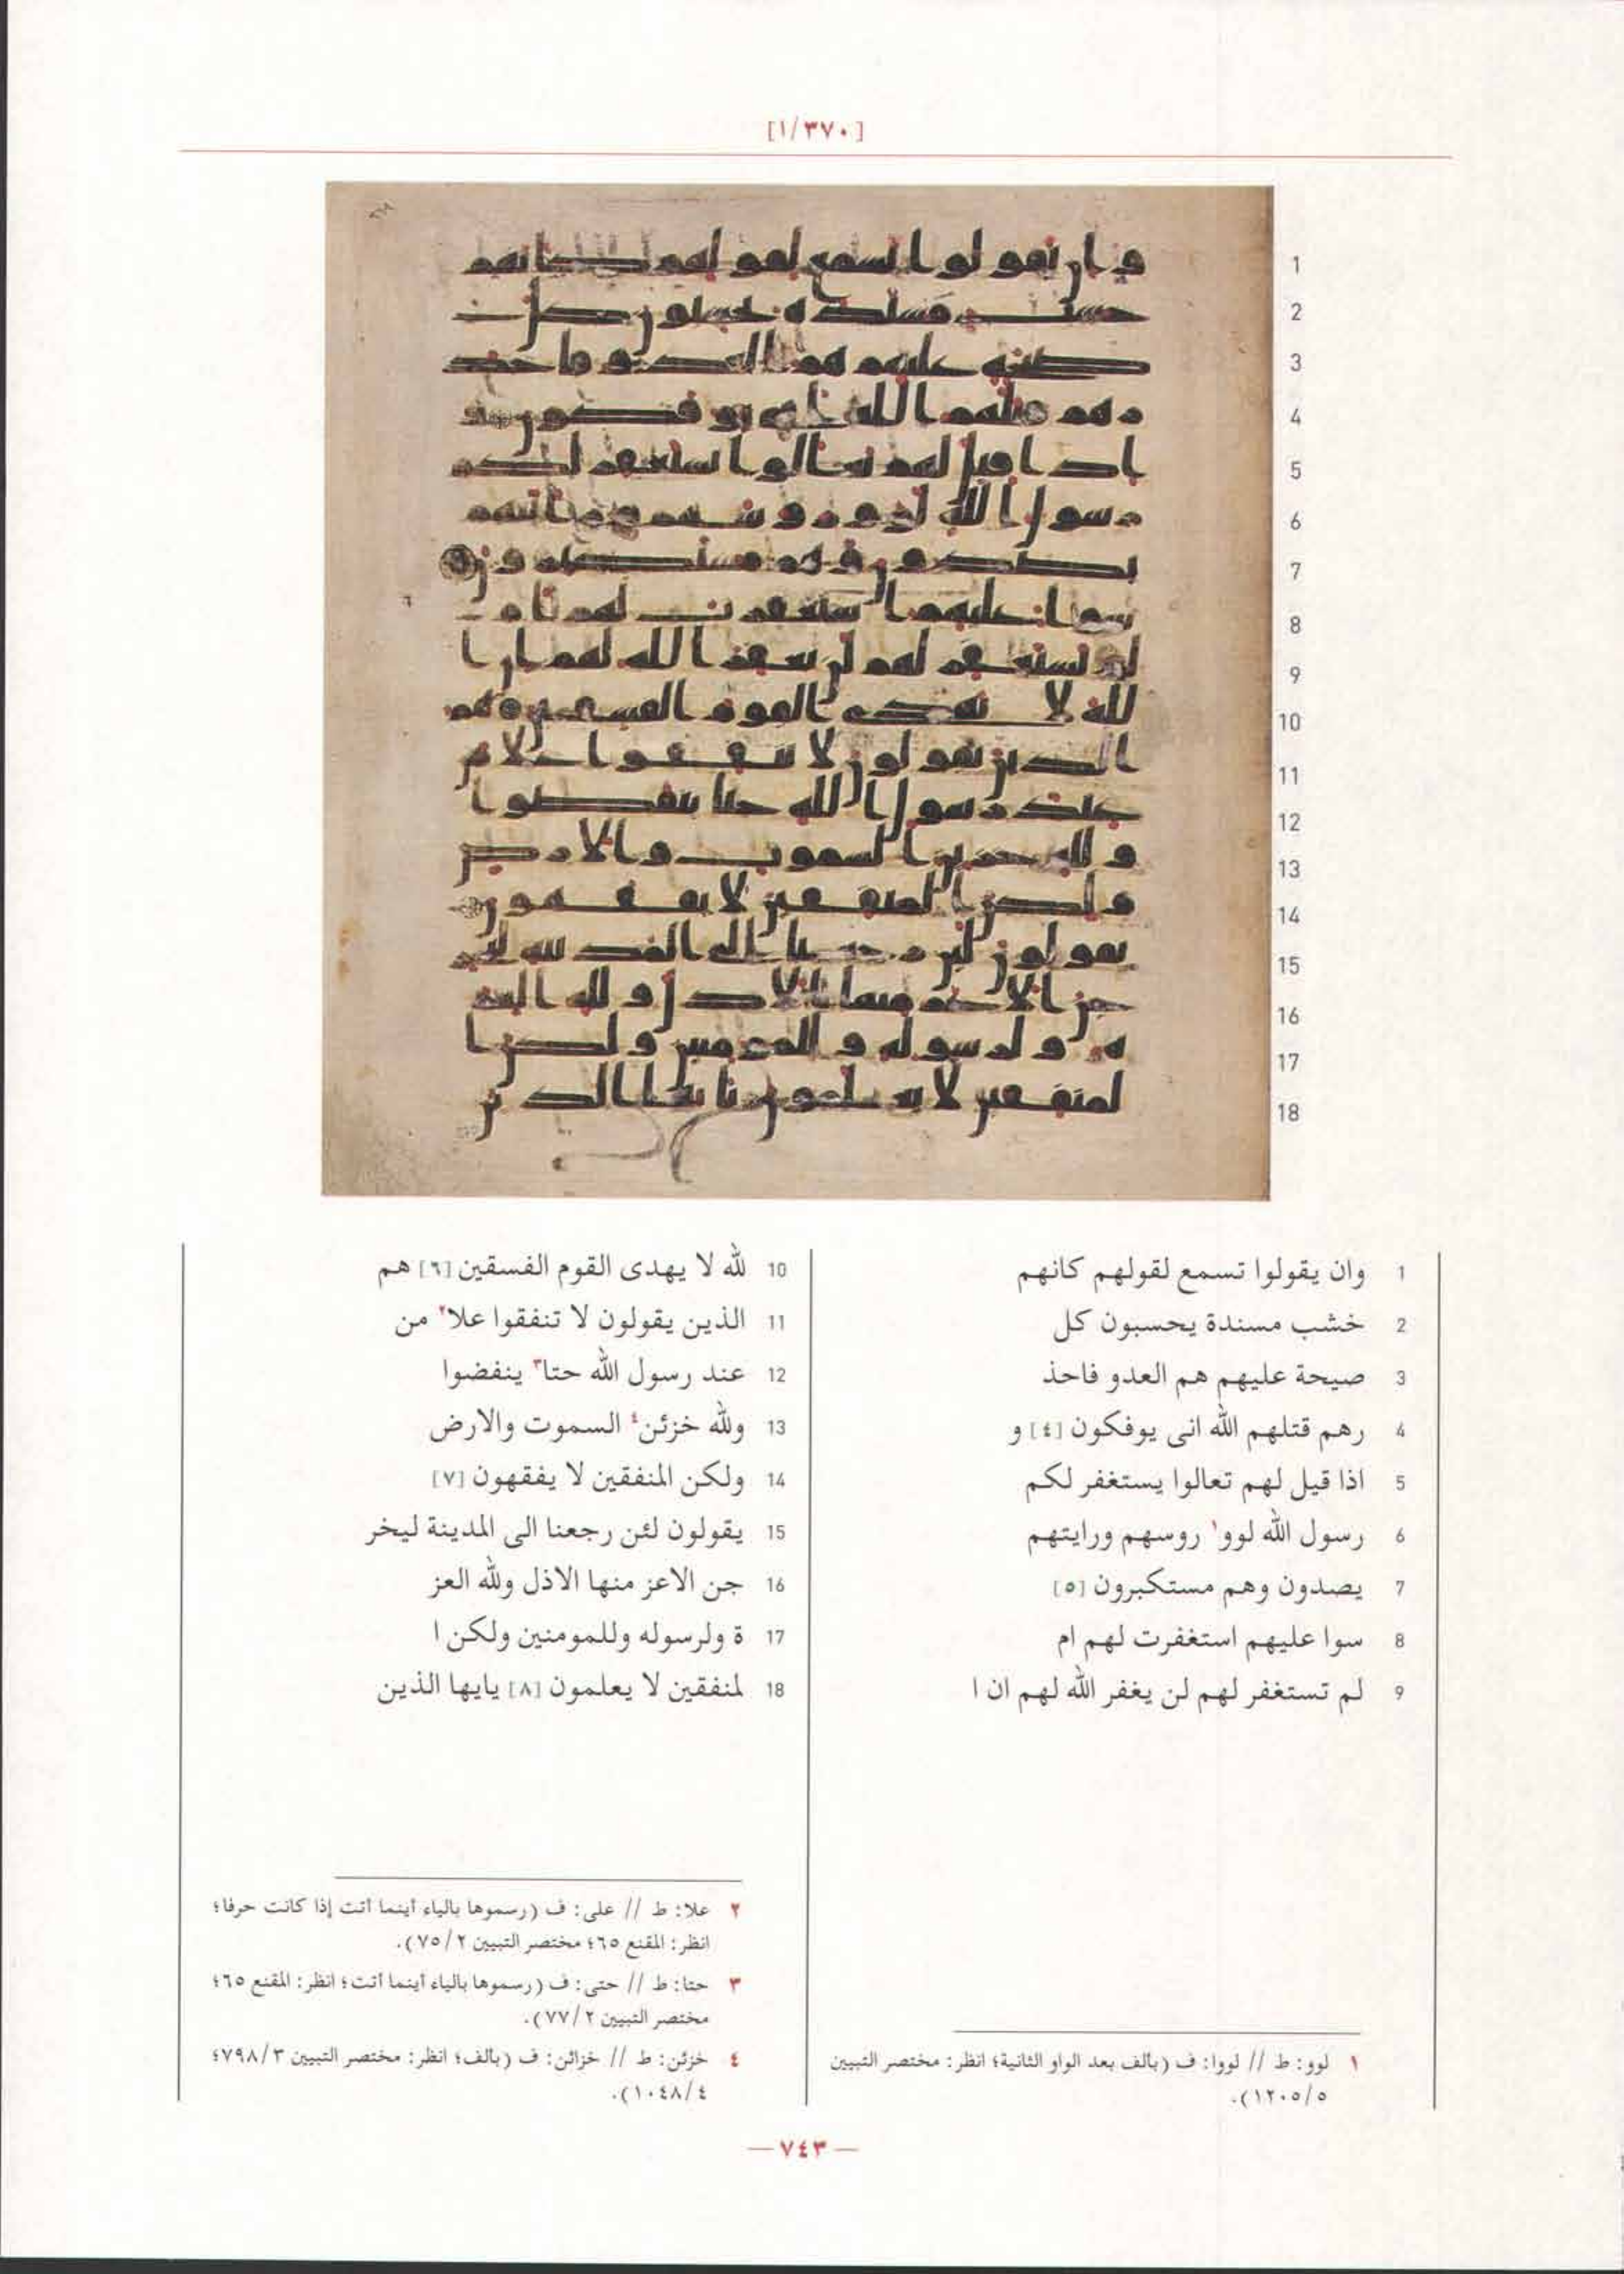 [١/٣٧٠]
1 وان يقولوا تسمع لقولهم كانهم
2 خشب مسندة يحسبون كل
3 صيحة عليهم هم العدو فاحذ
4 رهم قتلهم الله انى يوفكون [٤] و
5 اذا قيل لهم تعالوا يستغفر لكم
6 رسول الله لوو١ روسهم ورايتهم
7 يصدون وهم مستكبرون [٥]
8 سوا عليهم استغفرت لهم ام
9 لم تستغفر لهم لن يغفر الله لهم ان ا
10 لله لا يهدى القوم الفسقين [٦] هم
11 الذين يقولون لا تنفقوا علا٢ من
12 عند رسول الله حتا٣ ينفضوا
13 ولله خزئن٤ السموت والارض
14 ولكن المنفقين لا يفقهون [٧]
15 يقولون لئن رجعنا الى المدينة ليخر
16 جن الاعز منها الاذل ولله العز
17 ة ولرسوله وللمومنين ولكن ا
18 لمنفقين لا يعلمون [٨] يايها الذين
١ لوو: ط // لووا: ف (بالف بعد الواو الثانية؛ انظر: مختصر التبيين
٥/١٢٠٥).
٢ علا: ط // على: ف (رسموها بالياء أينما أتت إذا كانت حرفا؛
انظر: المقنع ٦٥؛ مختصر التبيين ٢/٧٥).
٣ حتا: ط // حتى: ف (رسموها بالياء أينما أتت؛ انظر: المقنع ٦٥؛
مختصر التبيين ٢/٧٧).
٤ خزئن: ط // خزائن: ف (بالف؛ انظر: مختصر التبيين ٣/٧٩٨؛
٤/١٠٤٨).
— ٧٤٣ —